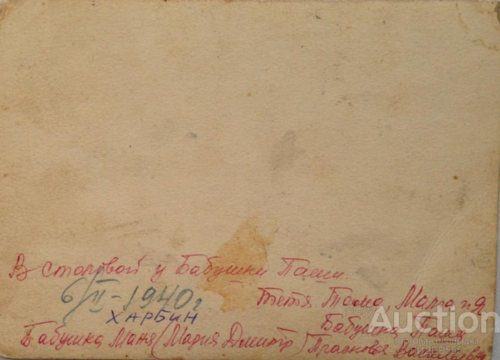 В столовой у Бабушки Паши
6/II-1940 г
ХАРБИН
Тетя Тома, Мама и я
Бабушка Паша
Бабушка Маня (Мария Дмитр) (Прасковья Васильевна
Auction